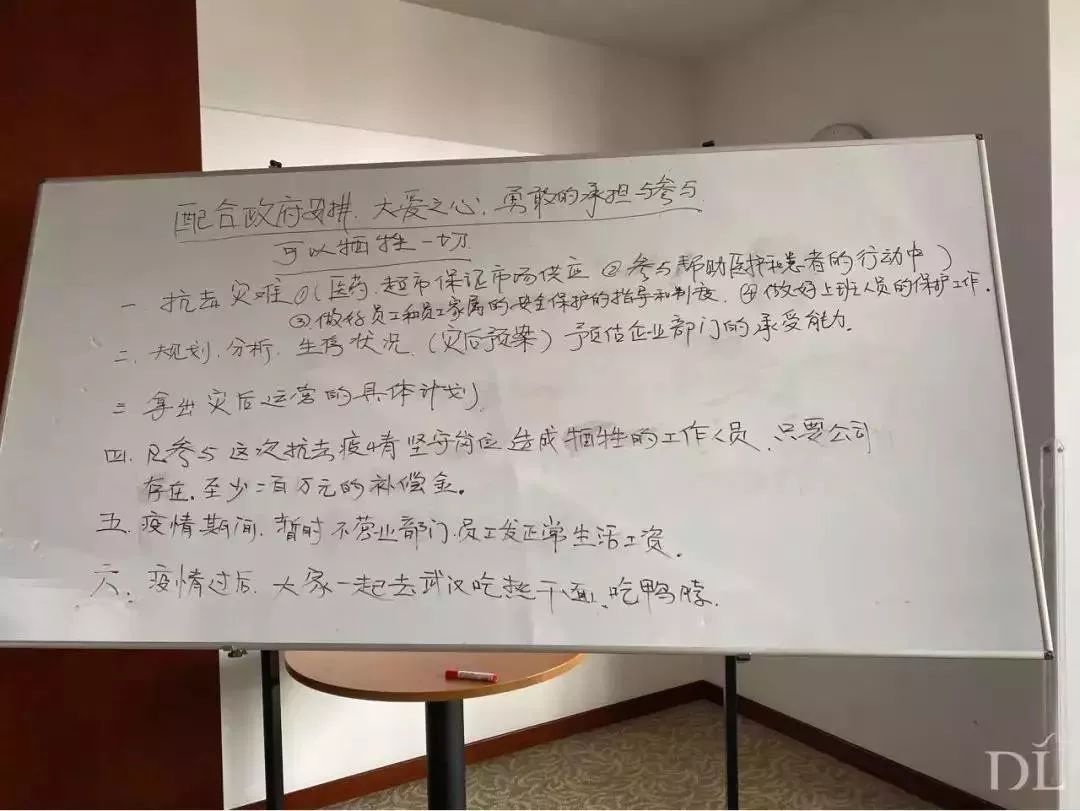 配合政府安排.大爱之心.勇敢的承担与参与.
可以牺牲一切
一 抗击灾难①(医药.超市保证市场供应 ②参与帮助医护和患者的行动中)
③做好员工和员工家属的安全保护的指导和制度.④做好上班人员的保护工作.
二.规划.分析.生存状况.(灾后预案)予估企业部门的承受能力.
三 拿出灾后运营的具体计划
四.凡参与这次抗击疫情坚守岗位造成牺牲的工作人员.只要公司
存在.至少二百万元的补偿金。
五.疫情期间.暂时不营业部门.员工发正常生活工资.
六.疫情过后.大家一起去武汉吃热干面.吃鸭脖.
DL